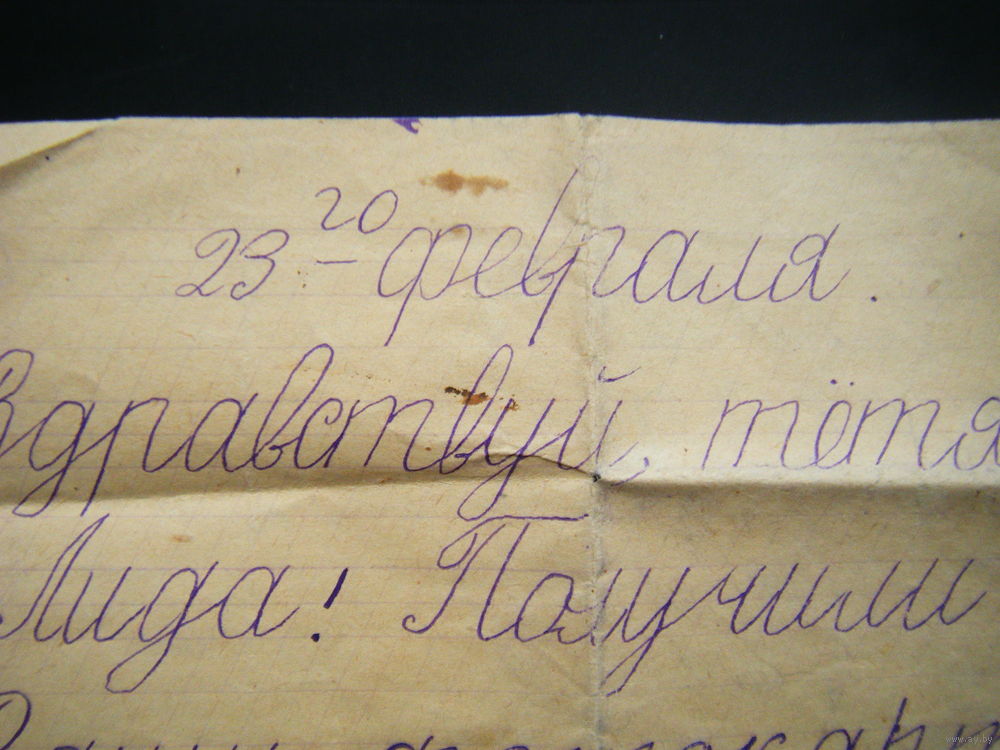 23-го февраля.
Здравствуй, тётя
Лида! Получили
www.ay.by